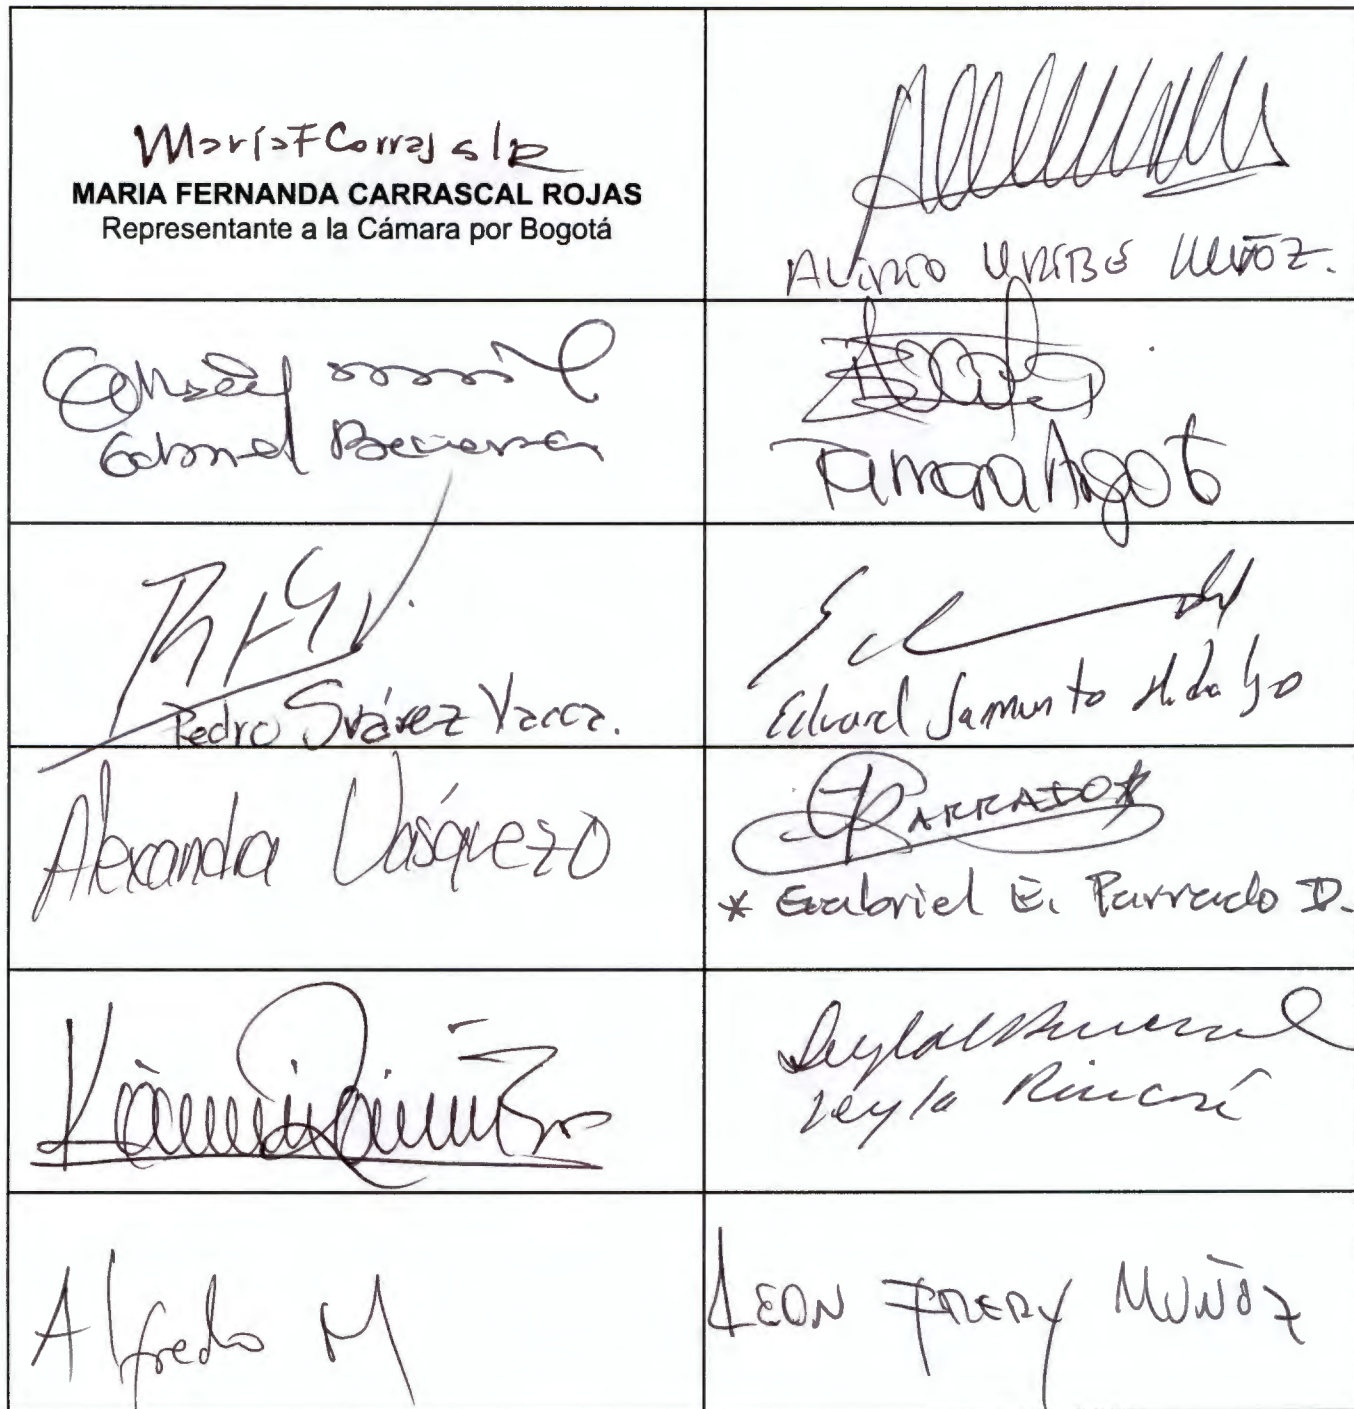 María F Carrascal R
MARIA FERNANDA CARRASCAL ROJAS
Representante a la Cámara por Bogotá
ALIRIO URIBE MUÑOZ.
Gabriel Becerra
Tamara Argote
Pedro Suárez Vacca.
Eduard Sarmiento Hidalgo
Alexandra Vásquez O
PARRADO *
* Gabriel E. Parrado D.
Leyla Rincón
Alfredo M
LEON FREDY MUÑOZ